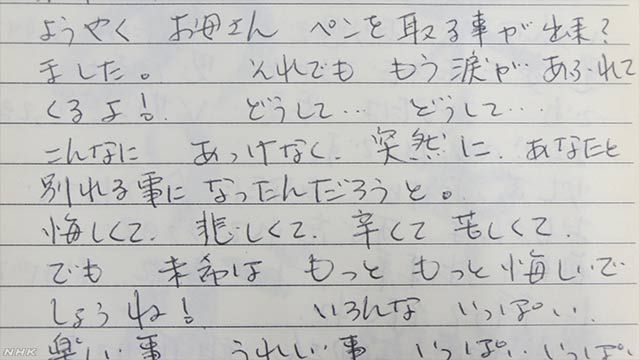 ようやく お母さん ペンを取る事が出来?
ました。 それでも もう涙が あふれて
くるよ! どうして… どうして…
こんなに あっけなく、突然に、あなたと
別れる事に なったんだろうと。
悔しくて、悲しくて、辛くて 苦しくて、
でも 未希は もっと もっと 悔しいで
しょうね! いろんな いっぱい、
楽しい事 うれしい事 いっぱい、いっぱい
NHK